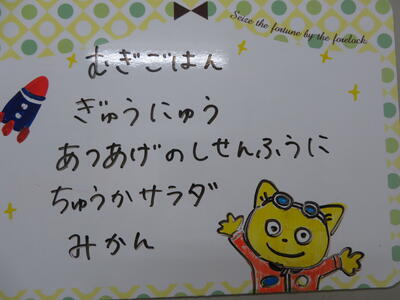 Seize the fortune by the forelock.
むぎごはん
ぎゅうにゅう
あつあげのしせんふうに
ちゅうかサラダ
みかん